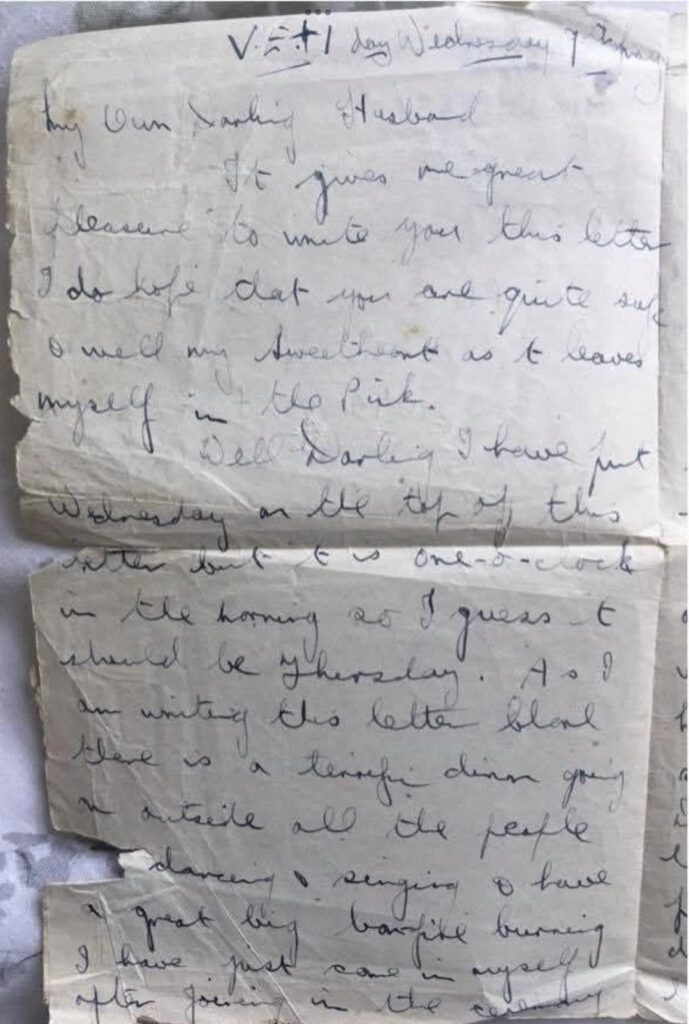 V.E+1 day Wednesday 9
My Own Darling Husband
It gives me great
pleasure to write you this letter
I do hope that you are quite safe
& well my Sweetheart as it leaves
myself in the Pink.
Well Darling I have put
Wednesday on the top of this
letter but it is one-o-clock
in the morning so I guess it
should be Thursday. As I
am writing this letter
there is a terrific dinn going
on outside all the people
dancing & singing & have
a great big bonfire burning
I have just come in myself
after joining in the ceremony